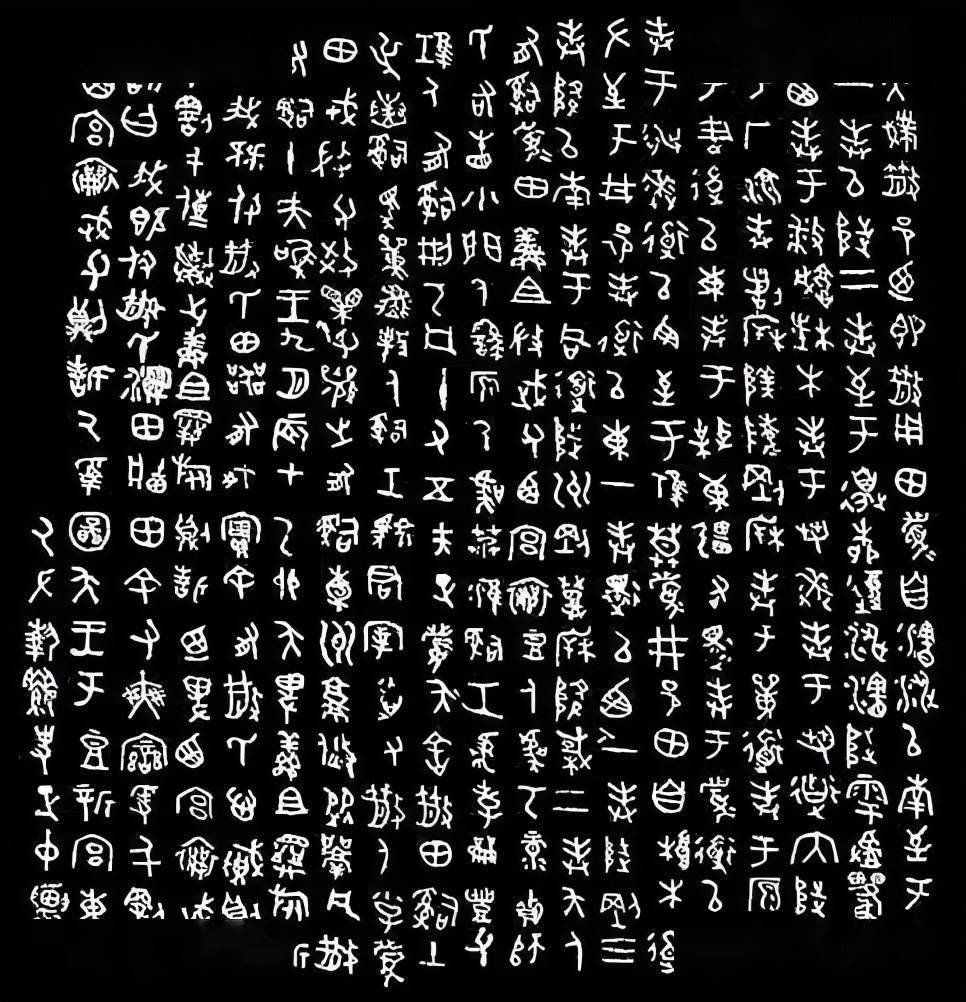 夨𢦚散邑迺即散用田眉自瀗涉以南至于
一奉以陟二奉至于邊柳復涉瀗陟雩
以西奉于敝城楮木奉于芻逨奉于芻道内陟
登于厂湶奉陵剛奉于單道奉于原道
奉于周道以東奉于東疆右還奉于眉道以南
奉于逨道以西至于莫眉井邑田自根木道
左至于井邑奉道以東一奉還以西一奉陟剛三
奉降以南奉于同道陟州剛登降棫二奉夨人
有司眉田鮮且微武父西宮襄豆人虞丂彔貞師
氏右眚小門人繇原人虞艿淮司工虎孝龠豐父
人有司荊丂凡十又五夫正眉夨舍散田司土
司馬單邦人司工君宰德父散人小子眉
田戎微父效果父襄之有司橐州就焂從凡散有
司十夫唯王九月辰在乙卯夨卑鮮且旅誓
我既付散氏田器有爽實余有散氏心賊則爰
千罰千傳棄之鮮且旅則誓迺卑西宮襄
武父誓曰我既付散氏濕田牆田余有爽變
爰千罰千西宮襄武父則誓厥受圖夨王于豆新宮東
厥左執要史正中農